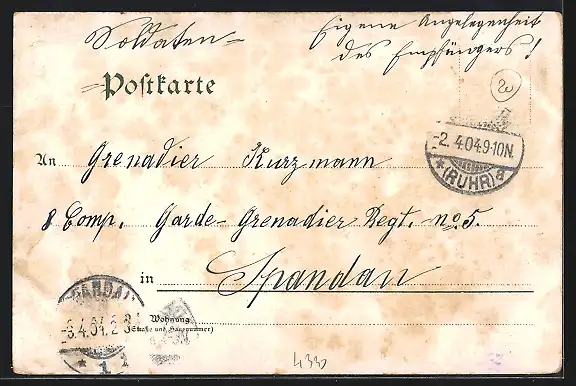 Soldaten-
Eigene Angelegenheit
des Empfängers!
Postkarte
2
-2.4.04.9-10N.
*(RUHR)a
An Grenadier Kurzmann
8 Comp. Garde-Grenadier Regt. no 5.
in Spandau
SPANDAU
-3.4.04.
* 1
Wohnung
(Straße und Hausnummer)
4330